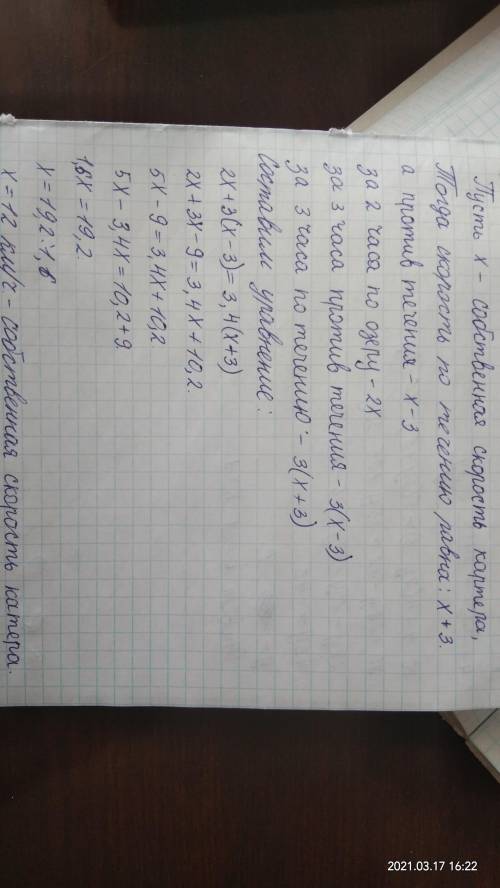 Пусть х - собственная скорость картера,
Тогда скорость по течению равна: х + 3.
а против течения - х - 3
за 2 часа по озеру - 2х
за 3 часа против течения - 3(х - 3)
за 3 часа по течению - 3(х + 3)
Составим уравнение:
2х + 3(х - 3) = 3,4(х + 3)
2х + 3х - 9 = 3,4х + 10,2.
5х - 9 = 3,4х + 10,2
5х - 3,4х = 10,2 + 9
1,6х = 19,2
х = 19,2 : 1,6
х = 12 км/ч - собственная скорость катера.
2021.03.17 16:22